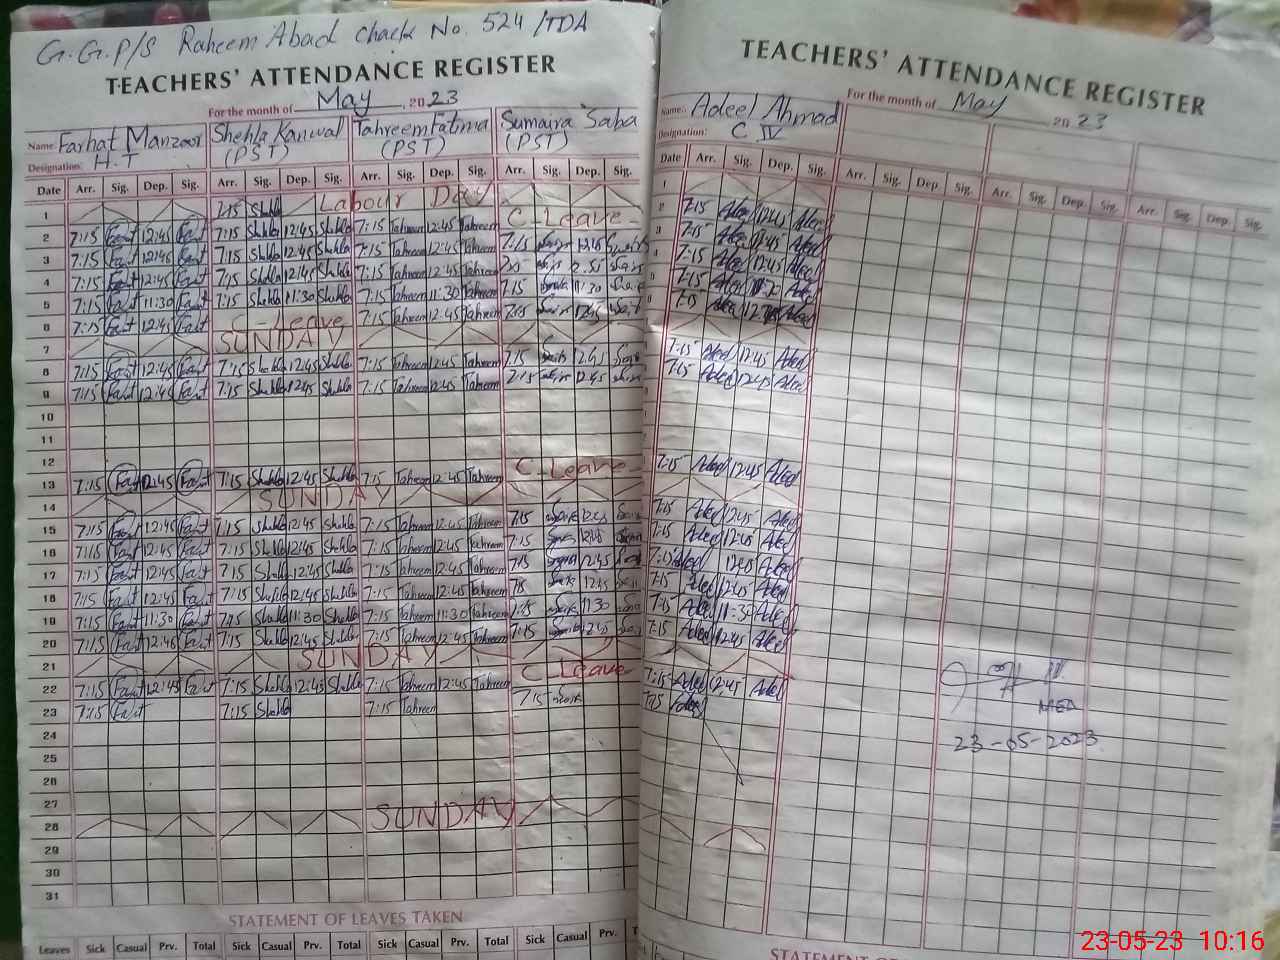 G.G.P/S Raheem Abad Chack No. 524/TDA
TEACHERS' ATTENDANCE REGISTER
For the month of May 2023
Name: Farhat Manzoor Shehla Kanwal Tahreem Fatima Sumaira Saba
Designation: H.T (PST) (PST) (PST)
Date Arr. Sig. Dep. Sig. Arr. Sig. Dep. Sig. Arr. Sig. Dep. Sig. Arr. Sig. Dep. Sig.
1 7:15 Shehla Labour Day
2 7:15 12:45 7:15 Shehla 12:45 Shehla 7:15 Tahreem 12:45 Tahreem C-Leave
3 7:15 12:45 7:15 Shehla 12:45 Shehla 7:15 Tahreem 12:45 Tahreem 7:15 12:45
4 7:15 12:45 7:15 Shehla 12:45 Shehla 7:15 Tahreem 12:45 Tahreem
5 7:15 11:30 7:15 Shehla 11:30 Shehla 7:15 Tahreem 11:30 Tahreem 7:15 11:30
6 7:15 12:45 C-Leave 7:15 Tahreem 12:45 Tahreem 7:15 12:45
7 SUNDAY
8 7:15 12:45 7:15 Shehla 12:45 Shehla 7:15 Tahreem 12:45 Tahreem 7:15 12:45
9 7:15 12:45 7:15 Shehla 12:45 Shehla 7:15 Tahreem 12:45 Tahreem 7:15 12:45
10
11
12
13 7:15 12:45 7:15 Shehla 12:45 Shehla 7:15 Tahreem 12:45 Tahreem C-Leave
14 SUNDAY
15 7:15 12:45 7:15 Shehla 12:45 Shehla 7:15 Tahreem 12:45 Tahreem 7:15
16 7:15 12:45 7:15 Shehla 12:45 Shehla 7:15 Tahreem 12:45 Tahreem 7:15 12:45
17 7:15 12:45 7:15 Shehla 12:45 Shehla 7:15 Tahreem 12:45 Tahreem 7:15 12:45
18 7:15 12:45 7:15 Shehla 12:45 Shehla 7:15 Tahreem 12:45 Tahreem 12:45
19 7:15 11:30 7:15 Shehla 11:30 Shehla 7:15 Tahreem 11:30 Tahreem 7:15 11:30
20 7:15 12:45 7:15 Shehla 12:45 Shehla 7:15 Tahreem 12:45 Tahreem 7:15 12:45
21 SUNDAY
22 7:15 12:45 7:15 Shehla 12:45 Shehla 7:15 Tahreem 12:45 Tahreem C-Leave
23 7:15 7:15 Shehla 7:15 Tahreem 7:15
24
25
26
27
28 SUNDAY
29
30
31
STATEMENT OF LEAVES TAKEN
Leaves Sick Casual Prv. Total Sick Casual Prv. Total Sick Casual Prv. Total Sick Casual Prv.
TEACHERS' ATTENDANCE REGISTER
For the month of May 2023
Name: Adeel Ahmad
Designation: C IV
Date Arr. Sig. Dep. Sig. Arr. Sig. Dep. Sig. Arr. Sig. Dep. Sig. Arr. Sig. Dep. Sig.
1
2 7:15 Adeel 12:45 Adeel
3 7:15 Adeel 12:45 Adeel
4 7:15 Adeel 12:45 Adeel
5 7:15 Adeel Adeel
6 7:15 Adeel Adeel
7:15 Adeel 12:45 Adeel
7:15 Adeel 12:45 Adeel
7:15 Adeel 12:45 Adeel
7:15 Adeel 12:45 Adeel
7:15 Adeel 12:45 Adeel
7:15 Adeel 12:45 Adeel
7:15 Adeel 12:45 Adeel
7:15 Adeel 11:30 Adeel
7:15 Adeel 12:45 Adeel
7:15 Adeel 12:45 Adeel
7:15 Adeel
MEA
23-05-2023
STATEMENT OF
23-05-23 10:16